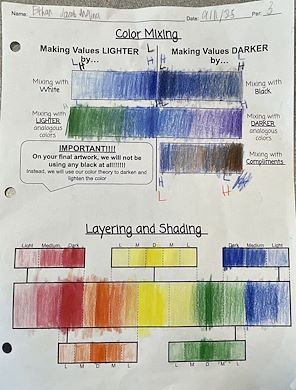 Name: Ethan Jacob Date: 9/11/25 Per: 3
Color Mixing
Making Values LIGHTER by...
Making Values DARKER by...
L
H
L H
H
Mixing with White
Mixing with Black
Mixing with LIGHTER analogous colors
Mixing with DARKER analogous colors
IMPORTANT!!!!
On your final artwork, we will not be using any black at all!!!!!!
Instead, we will use our color theory to darken and lighten the color
Mixing with Compliments
L
H
L
H
L
H
Layering and Shading
Light Medium Dark
L M D M L
Dark Medium Light
L M D M L
L M D M L